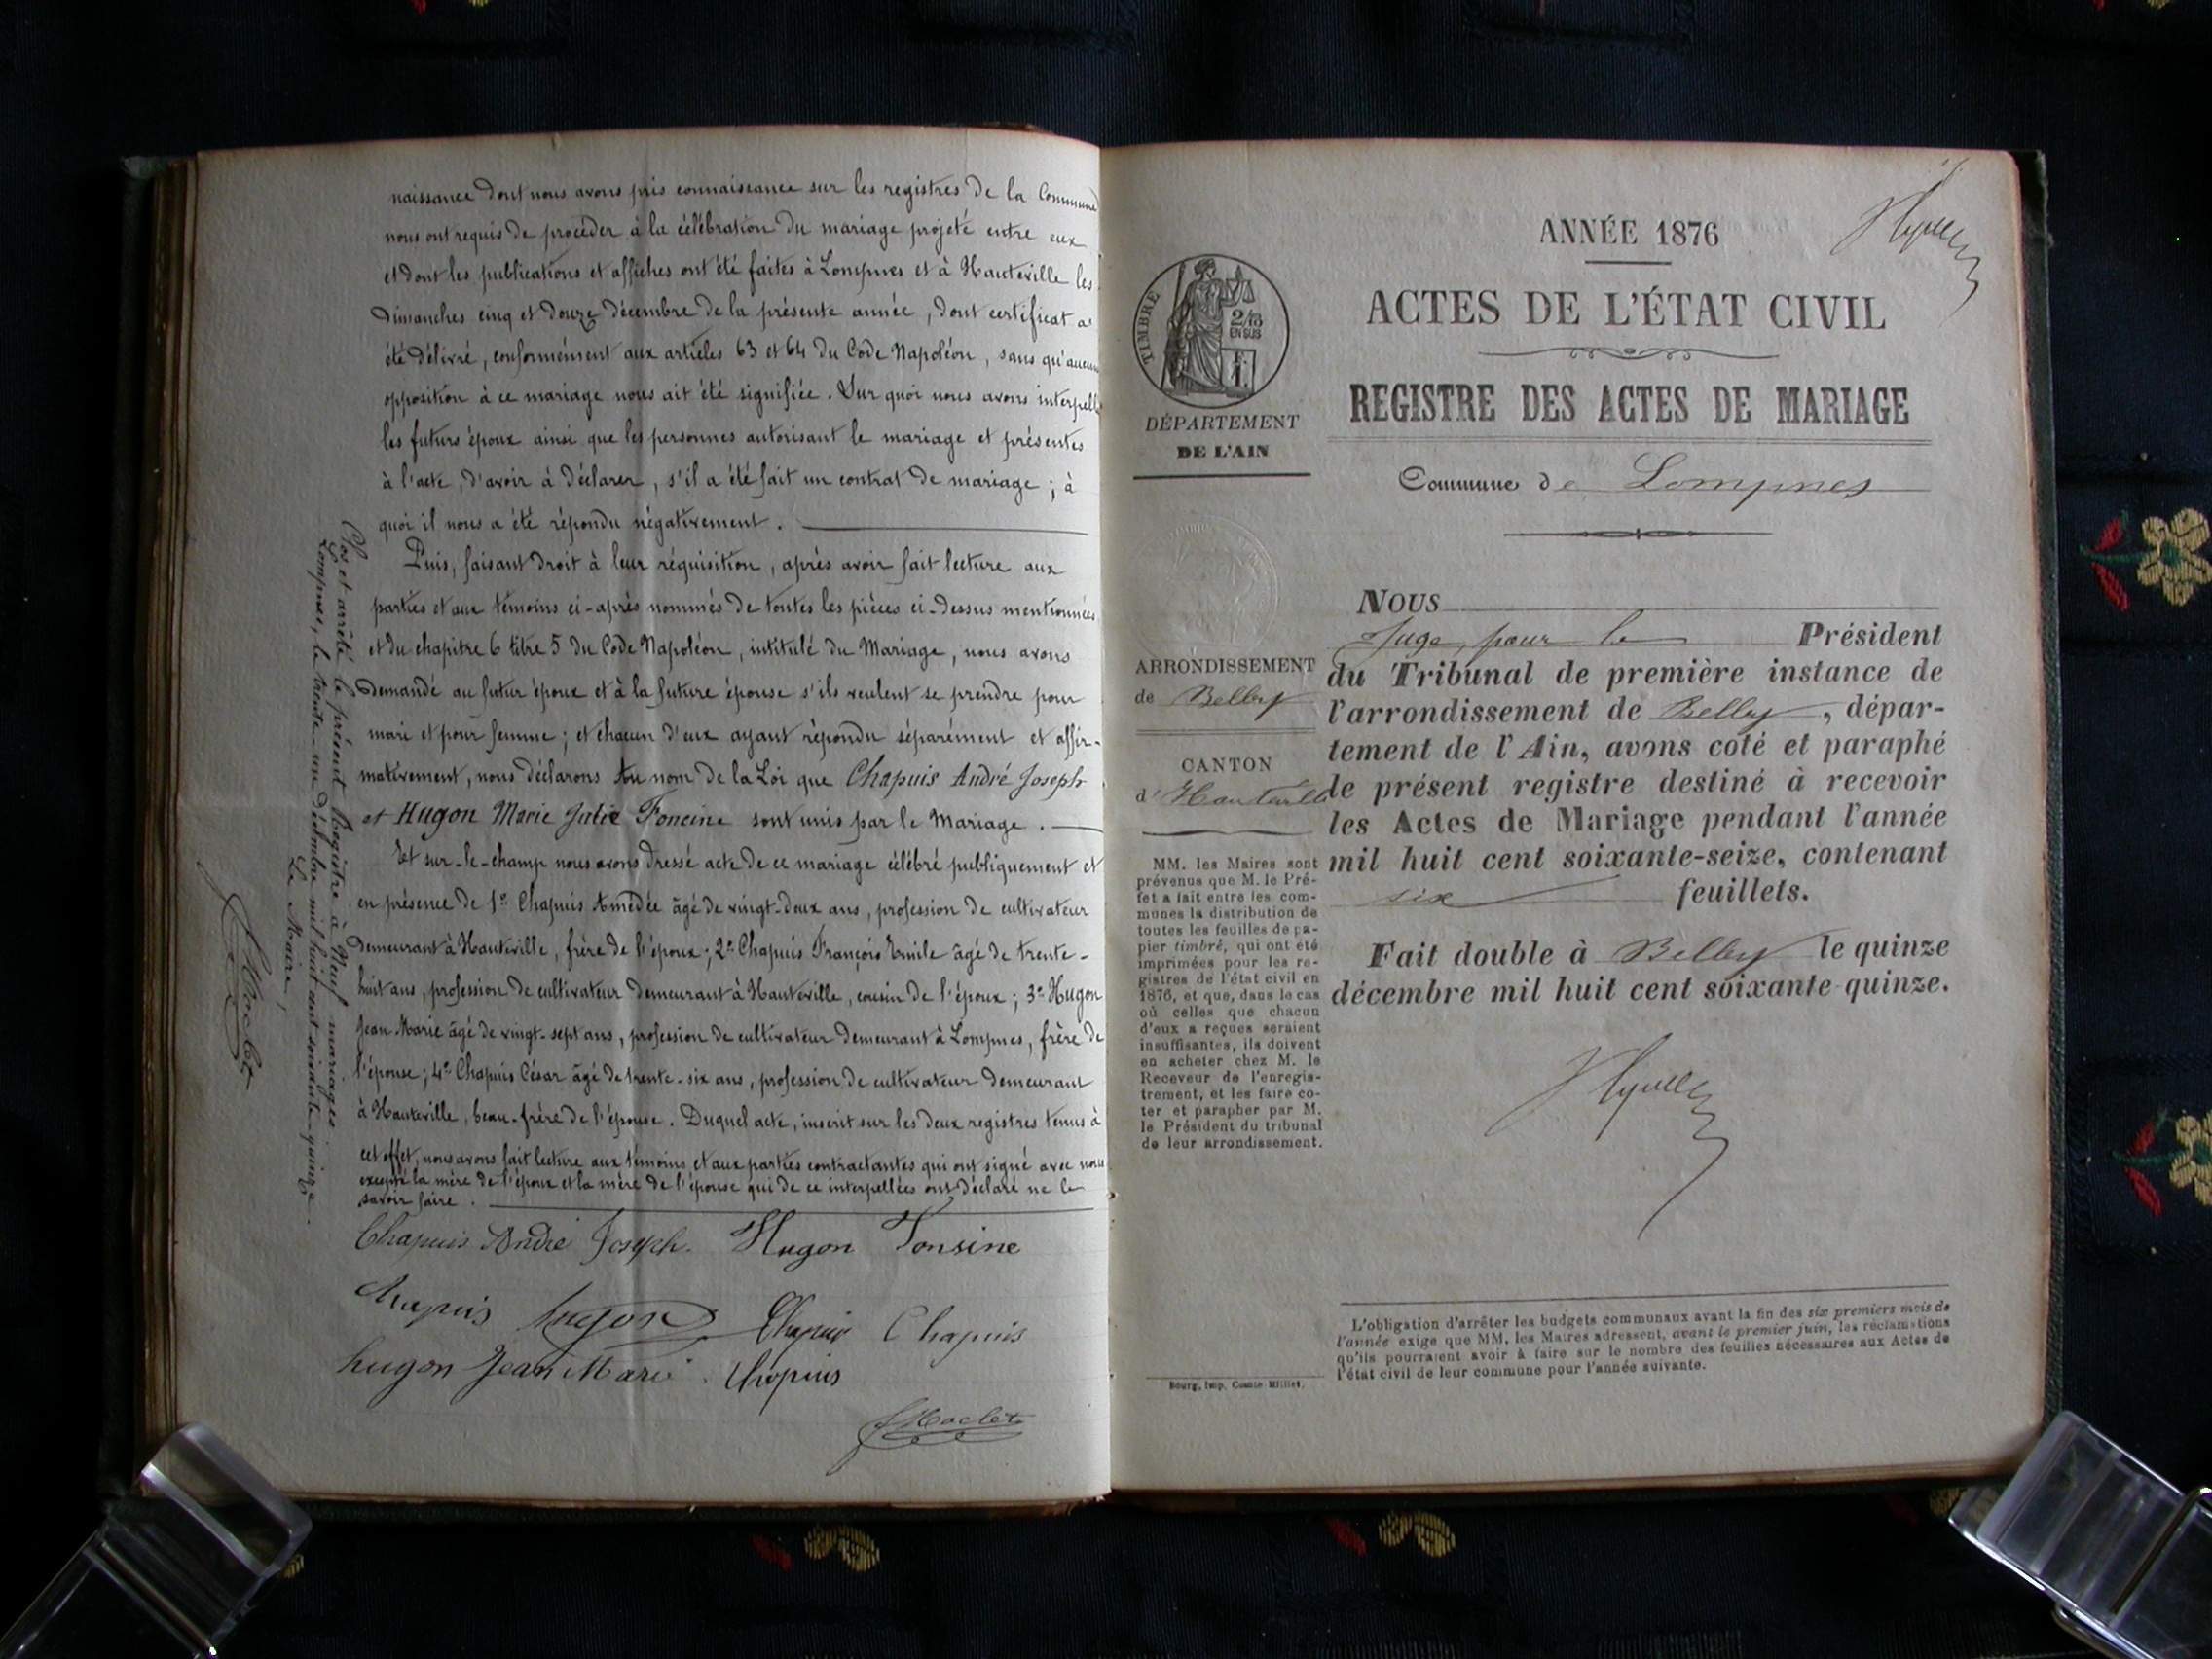 naissance dont nous avons pris connaissance sur les registres de la Commune
nous ont requis de procéder à la célébration du mariage projeté entre eux
et dont les publications et affiches ont été faites à Lompnes et à Hauteville les
Dimanches cinq et douze Décembre de la présente année, dont certificat a
été délivré, conformément aux articles 63 et 64 du Code Napoléon, sans qu'aucune
opposition à ce mariage nous ait été signifiée. Sur quoi nous avons interpellé
les futurs époux ainsi que les personnes autorisant le mariage et présentes
à l'acte, d'avoir à déclarer, s'il a été fait un contrat de mariage ; à
quoi il nous a été répondu négativement.
Puis, faisant droit à leur réquisition, après avoir fait lecture aux
parties et aux témoins ci-après nommés de toutes les pièces ci-dessus mentionnées
et du chapitre 6 titre 5 du Code Napoléon, intitulé du Mariage, nous avons
demandé au futur époux et à la future épouse s'ils veulent se prendre pour
mari et pour femme ; et chacun d'eux ayant répondu séparément et affir-
mativement, nous déclarons Au nom de la Loi que Chapuis André Joseph
et Hugon Marie Julie Foncine sont unis par le Mariage.
Et sur-le-champ nous avons dressé acte de ce mariage célébré publiquement et
en présence de 1° Chapuis Amédée âgé de vingt-deux ans, profession de cultivateur
demeurant à Hauteville, frère de l'époux ; 2° Chapuis François Emile âgé de trente-
huit ans, profession de cultivateur demeurant à Hauteville, cousin de l'époux ; 3° Hugon
Jean Marie âgé de vingt-sept ans, profession de cultivateur demeurant à Lompnes, frère de
l'épouse ; 4° Chapuis César âgé de trente-six ans, profession de cultivateur demeurant
à Hauteville, beau-frère de l'épouse. Duquel acte, inscrit sur les deux registres tenus à
cet effet, nous avons fait lecture aux témoins et aux parties contractantes qui ont signé avec nous
excepté la mère de l'époux et la mère de l'épouse qui de ce interpellées ont déclaré ne le
savoir faire.
Chapuis André Joseph. Hugon Fonsine
Chapuis hugon Chapuis Chapuis
hugon Jean Marie. Chapuis
Clos et arrêté le présent Registre à Neuf mariages
Lompnes, le trente-un décembre mil huit cent soixante-quinze.
Le Maire,
ANNÉE 1876
ACTES DE L'ÉTAT CIVIL
REGISTRE DES ACTES DE MARIAGE
Commune de Lompnes
TIMBRE
2/10
EN SUS
DÉPARTEMENT
DE L'AIN
ARRONDISSEMENT
de Belley
CANTON
d'Hauteville
MM. les Maires sont
prévenus que M. le Pré-
fet a fait entre les com-
munes la distribution de
toutes les feuilles de pa-
pier timbré, qui ont été
imprimées pour les re-
gistres de l'état civil en
1876, et que, dans le cas
où celles que chacun
d'eux a reçues seraient
insuffisantes, ils doivent
en acheter chez M. le
Receveur de l'enregis-
trement, et les faire co-
ter et parapher par M.
le Président du tribunal
de leur arrondissement.
Bourg, Imp. Comte-Milliet.
NOUS
Juge, pour le Président
du Tribunal de première instance de
l'arrondissement de Belley, dépar-
tement de l'Ain, avons coté et paraphé
le présent registre destiné à recevoir
les Actes de Mariage pendant l'année
mil huit cent soixante-seize, contenant
six feuillets.
Fait double à Belley le quinze
décembre mil huit cent soixante-quinze.
L'obligation d'arrêter les budgets communaux avant la fin des six premiers mois de
l'année exige que MM. les Maires adressent, avant le premier juin, les réclamations
qu'ils pourraient avoir à faire sur le nombre des feuilles nécessaires aux Actes de
l'état civil de leur commune pour l'année suivante.